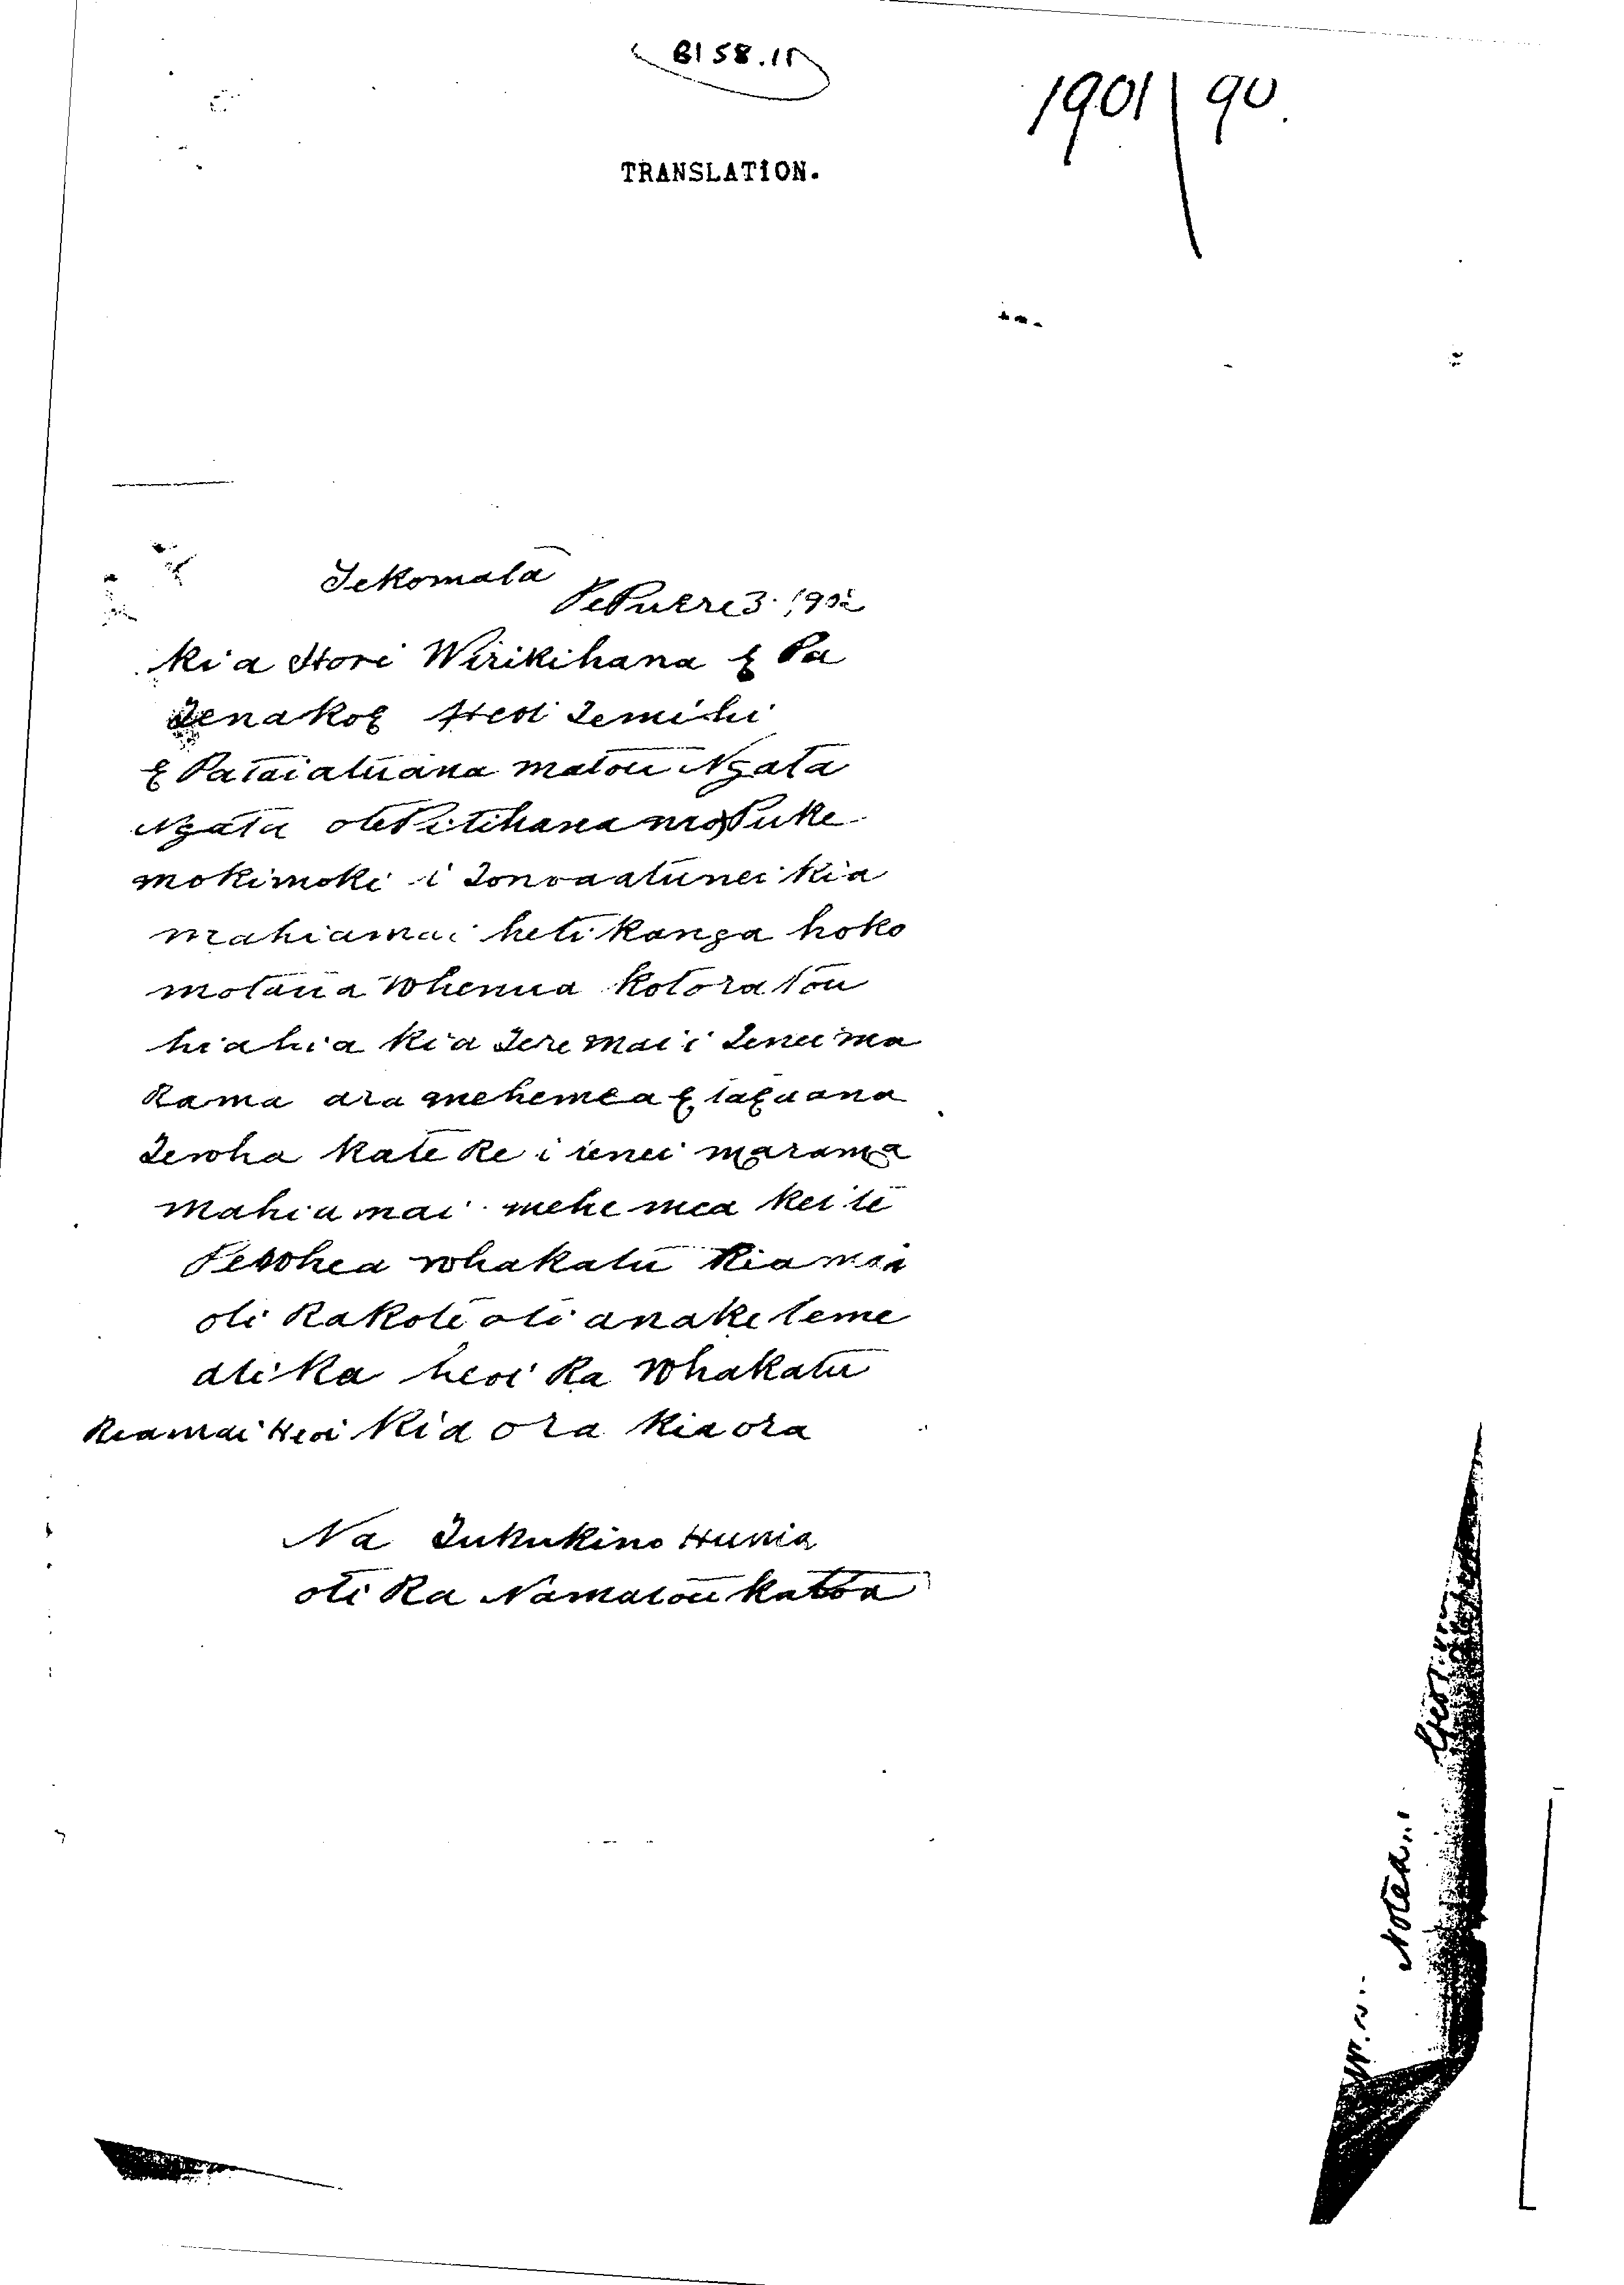 B158.11
1901/90.
TRANSLATION.
Tekomata
Pepuere 3. 1902
kia Hori Wirikihana E Pa
Tenakoe Heoi Temihi
E Pataiatuana matou Ngata
Ngata otePitihana mo Puke
mokimoki i Tonoaatunei kia
mahiamai hetikanga hoko
motaua whenua kotoratou
hiahia kia Tere mai i Tenei ma
Rama ara mehemea E taEaana
Tewha kateke i tenei marama
mahia mai mehe mea kei te
Pewhea whakatu kiamai
oti Rakote oti anake teme
atika heoi Ra whakatu
Riamai Heoi Kia ora kia ora
Na Tukukino Hunia
oti Ra Namatou katoa
Notea